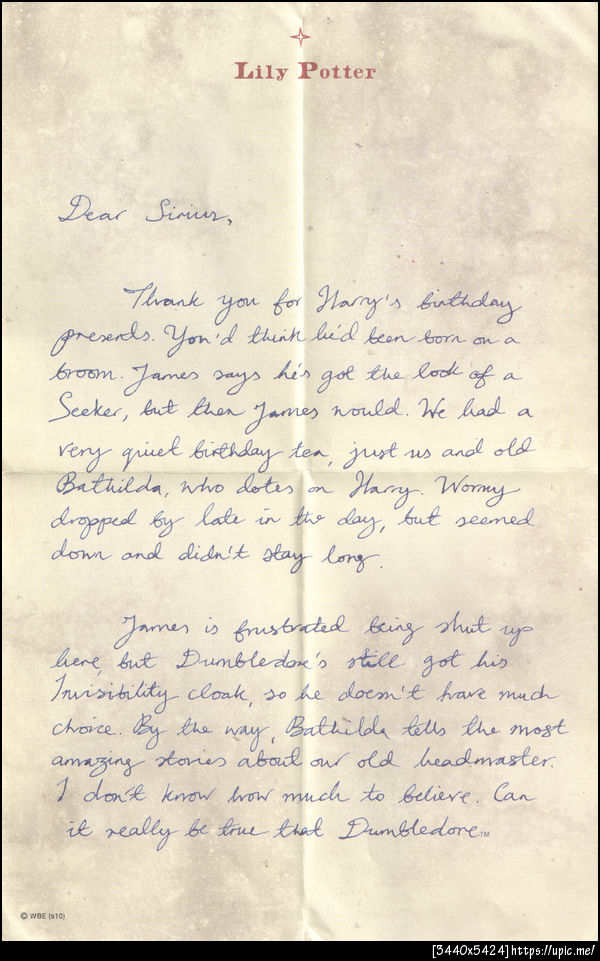 Lily Potter
Dear Sirius,
Thank you for Harry's birthday
presents. You'd think he'd been born on a
broom. James says he's got the look of a
Seeker, but then James would. We had a
very quiet birthday tea, just us and old
Bathilda, who dotes on Harry. Wormy
dropped by late in the day, but seemed
down and didn't stay long.
James is frustrated being shut up
here, but Dumbledore's still got his
Invisibility cloak, so he doesn't have much
choice. By the way, Bathilda tells the most
amazing stories about our old headmaster.
I don't know how much to believe. Can
it really be true that Dumbledore™
© WBE (s10)
[3440x5424]https://upic.me/